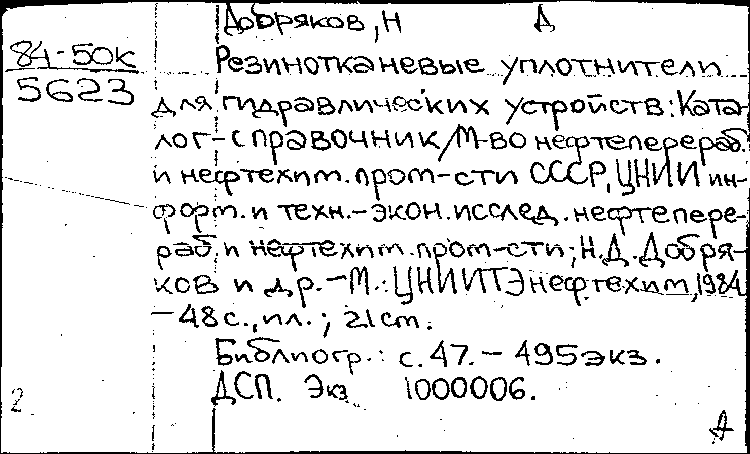 Добряков, Н Д
84-50к
5623
Резинотканевые уплотнители
для гидравлических устройств: Ката-
лог-справочник/М-во нефтеперераб.
и нефтехим.пром-сти СССР, ЦНИИ ин-
форм. и техн.-экон. исслед. нефтепере-
раб. и нефтехим. пром-сти; Н.Д. Добря-
ков и др. - М.: ЦНИИТЭнефтехим, 1984
- 48с., ил.; 21см.
Библиогр.: с. 47. - 495экз.
ДСП. Экз 1000006.
2
А